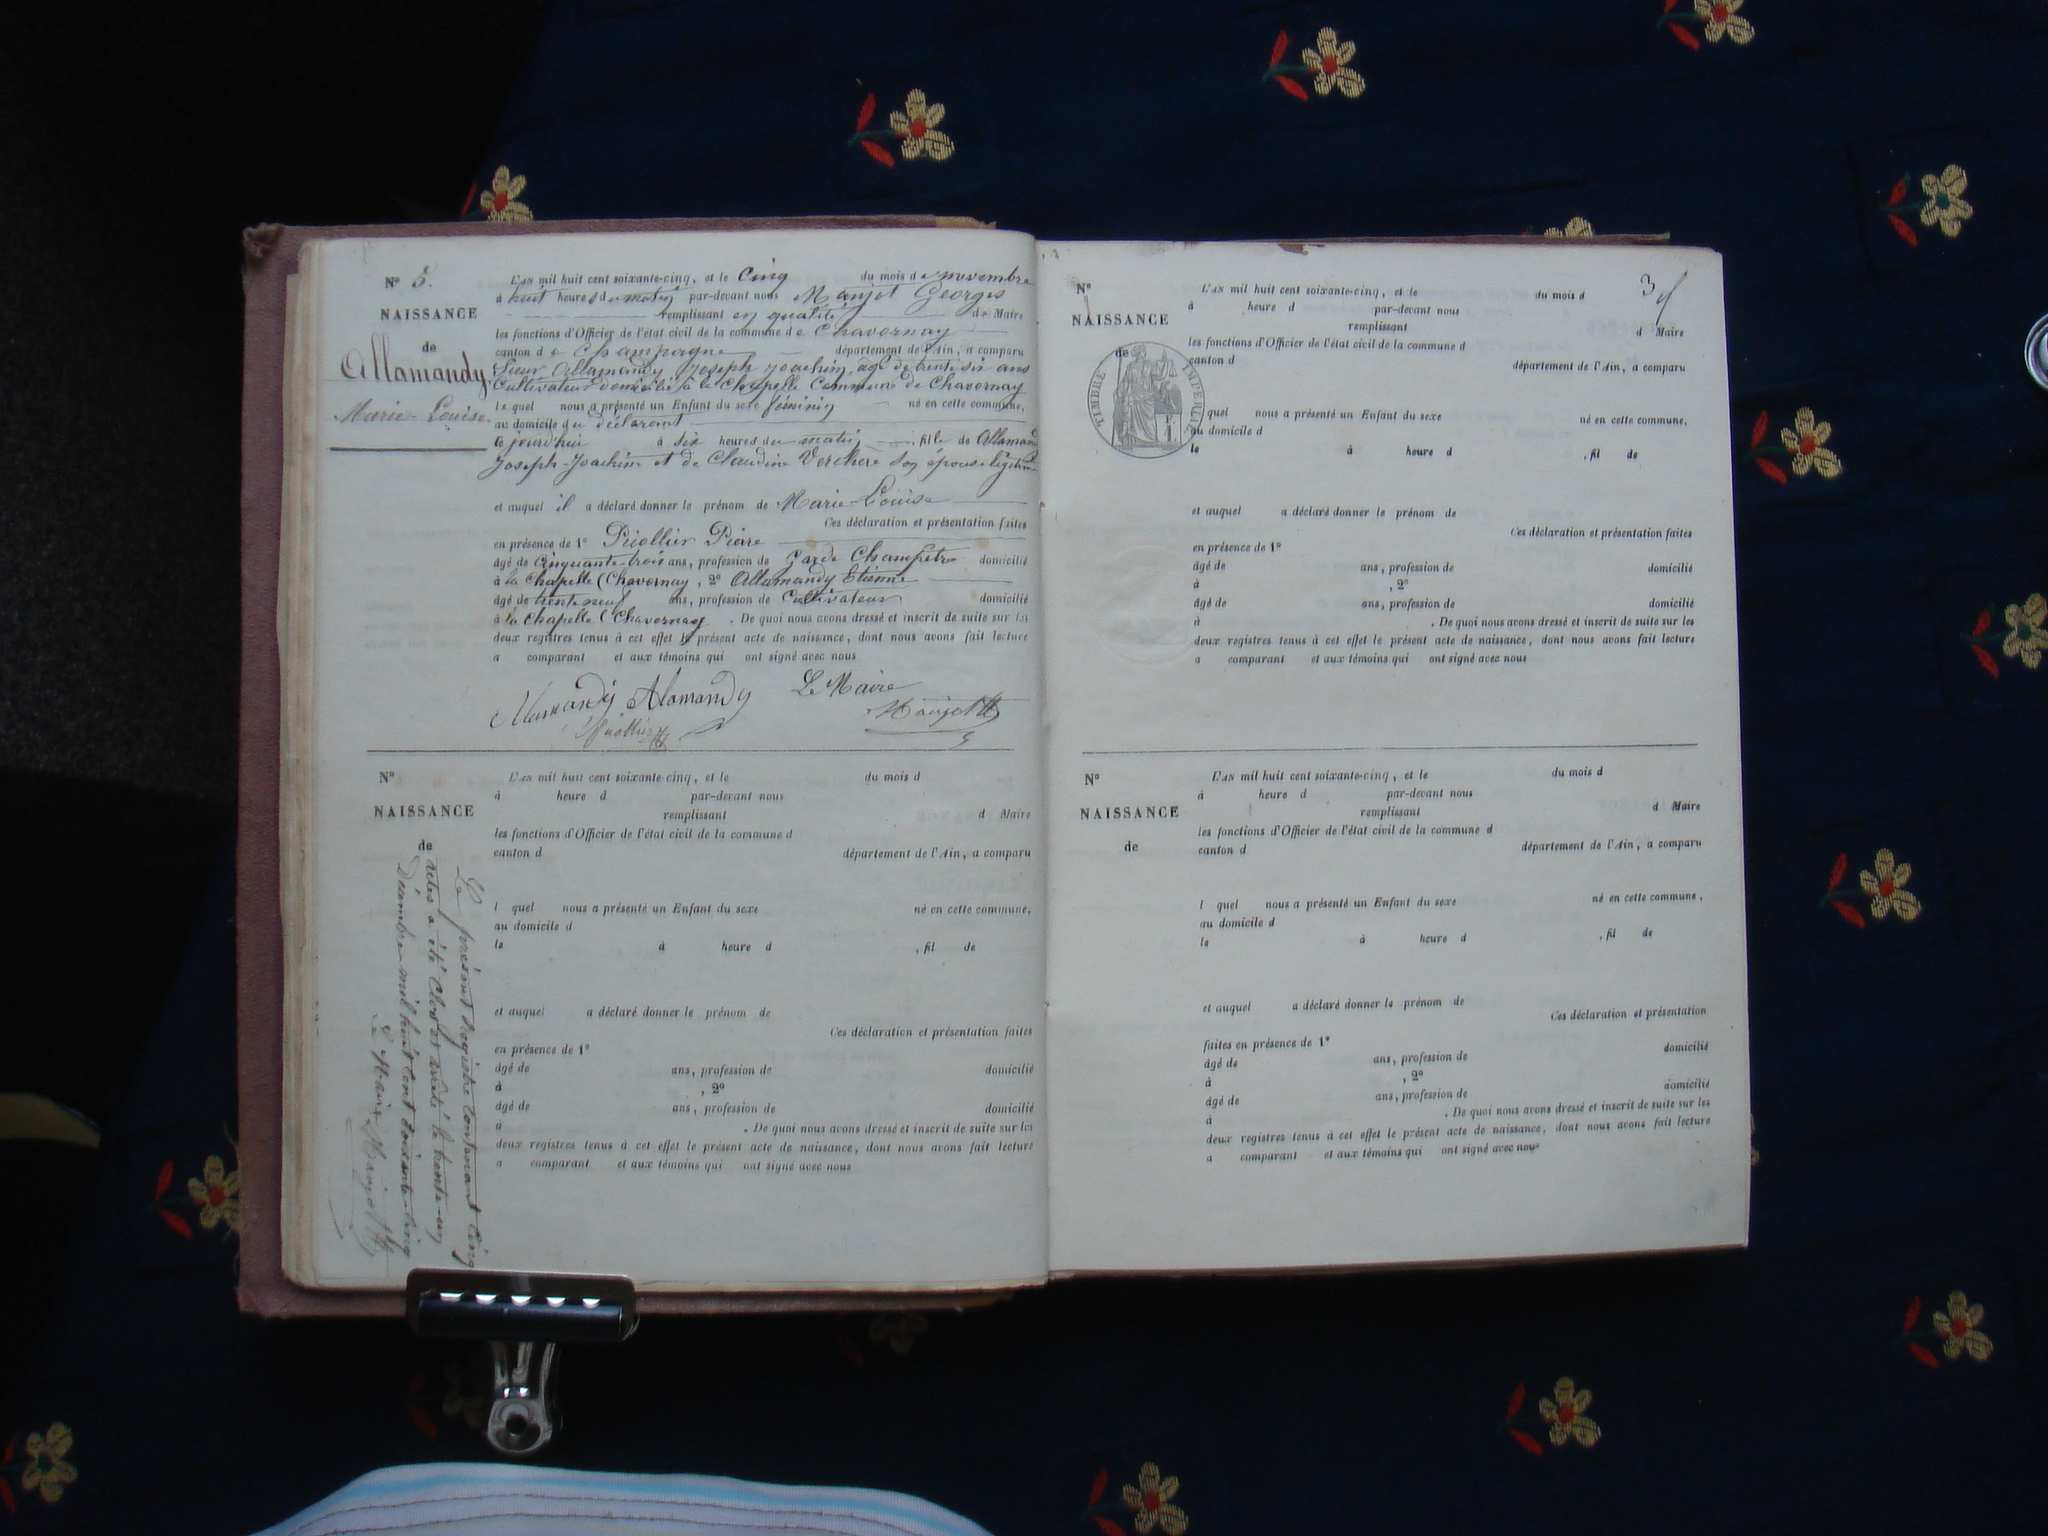 Nº 5.
NAISSANCE
de
Allamandy
Marie-Louise
L'AN mil huit cent soixante-cinq, et le Cinq du mois de novembre
à huit heures du matin par-devant nous Manjot Georges
remplissant en qualité de Maire
les fonctions d'Officier de l'état civil de la commune de Chavornay
canton de Champagne département de l'Ain, a comparu
Sieur Allamandy Joseph Joachim, âgé de trente six ans
Cultivateur domicilié à la Chapelle Commune de Chavornay
lequel nous a présenté un Enfant du sexe féminin né en cette commune,
au domicile du déclarant
ce jourd'hui à six heures du matin, fille de Allamandy
Joseph-Joachim et de Claudine Verchère son épouse légitime
et auquel il a déclaré donner le prénom de Marie-Louise
Ces déclaration et présentation faites
en présence de 1º Piollier Pierre
âgé de cinquante-trois ans, profession de Garde Champêtre domicilié
à la Chapelle (Chavornay, 2º Allamandy Etienne
âgé de trente neuf ans, profession de Cultivateur domicilié
à la Chapelle (Chavornay. De quoi nous avons dressé et inscrit de suite sur les
deux registres tenus à cet effet le présent acte de naissance, dont nous avons fait lecture
a comparant et aux témoins qui ont signé avec nous
Allamandy Alamandy Le Maire
Piollier Manjot
Nº
NAISSANCE
de
L'AN mil huit cent soixante-cinq, et le du mois d
à heure d par-devant nous
remplissant d Maire
les fonctions d'Officier de l'état civil de la commune d
canton d département de l'Ain, a comparu
l quel nous a présenté un Enfant du sexe né en cette commune,
au domicile d
le à heure d , fil de
et auquel a déclaré donner le prénom de
Ces déclaration et présentation faites
en présence de 1º
âgé de ans, profession de domicilié
à , 2º
âgé de ans, profession de domicilié
à . De quoi nous avons dressé et inscrit de suite sur les
deux registres tenus à cet effet le présent acte de naissance, dont nous avons fait lecture
a comparant et aux témoins qui ont signé avec nous
Le présent Registre contenant cinq
actes a été Clos et arrêté le trente-un
Décembre mil huit cent soixante-cinq
Le Maire Manjot
3
Nº
NAISSANCE
de
TIMBRE IMPERIAL
L'AN mil huit cent soixante-cinq, et le du mois d
à heure d par-devant nous
remplissant d Maire
les fonctions d'Officier de l'état civil de la commune d
canton d département de l'Ain, a comparu
l quel nous a présenté un Enfant du sexe né en cette commune,
au domicile d
le à heure d , fil de
et auquel a déclaré donner le prénom de
Ces déclaration et présentation faites
en présence de 1º
âgé de ans, profession de domicilié
à , 2º
âgé de ans, profession de domicilié
à . De quoi nous avons dressé et inscrit de suite sur les
deux registres tenus à cet effet le présent acte de naissance, dont nous avons fait lecture
a comparant et aux témoins qui ont signé avec nous
Nº
NAISSANCE
de
L'AN mil huit cent soixante-cinq, et le du mois d
à heure d par-devant nous
remplissant d Maire
les fonctions d'Officier de l'état civil de la commune d
canton d département de l'Ain, a comparu
l quel nous a présenté un Enfant du sexe né en cette commune,
au domicile d
le à heure d , fil de
et auquel a déclaré donner le prénom de
Ces déclaration et présentation
faites en présence de 1º
âgé de ans, profession de domicilié
à , 2º
âgé de ans, profession de domicilié
à . De quoi nous avons dressé et inscrit de suite sur les
deux registres tenus à cet effet le présent acte de naissance, dont nous avons fait lecture
a comparant et aux témoins qui ont signé avec nous